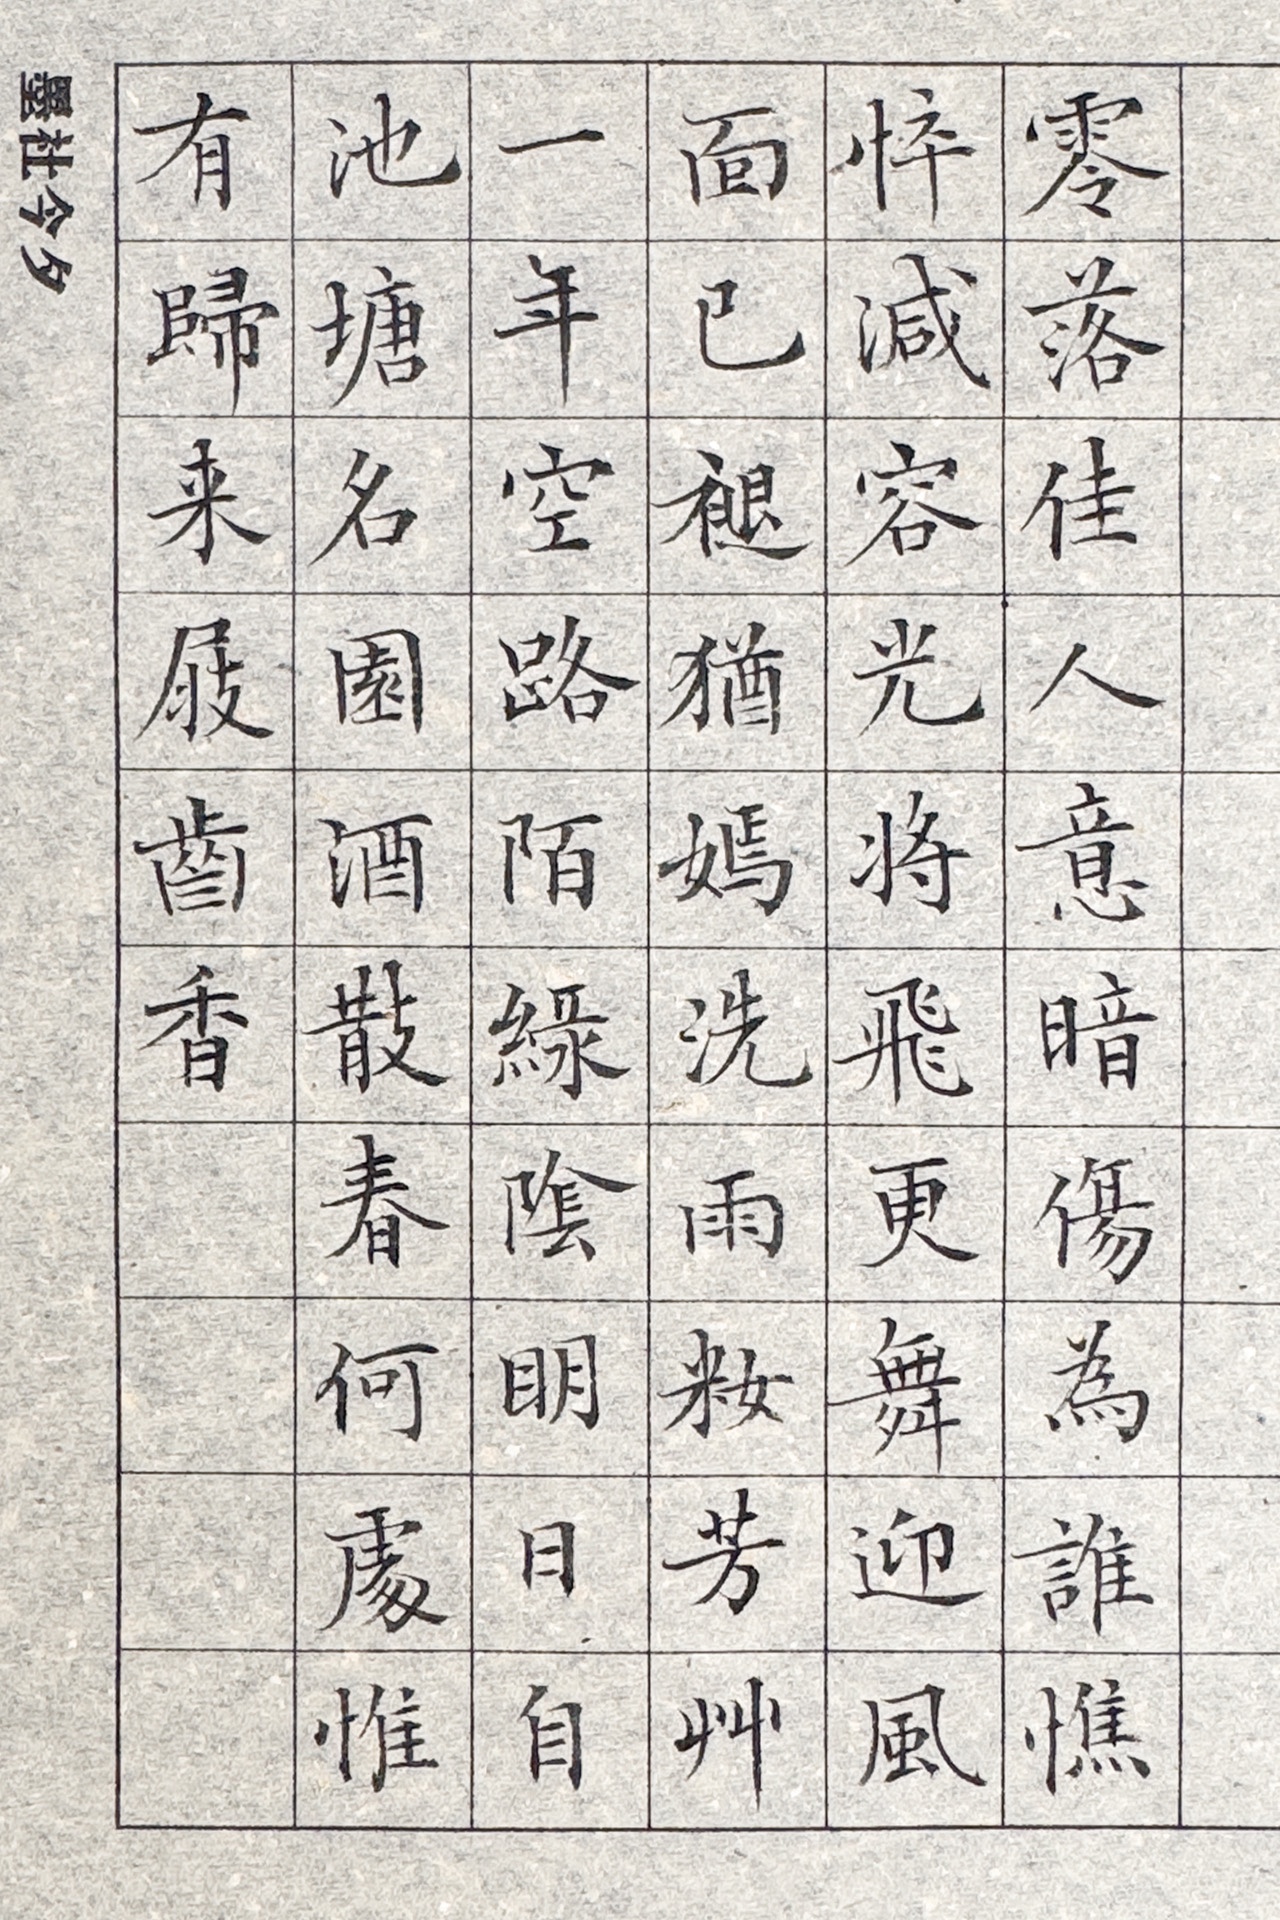 零落佳人意暗傷為誰憔
悴減容光將飛更舞迎風
面已褪猶嫣洗雨粧芳艸
一年空路陌綠陰明日自
池塘名園酒散春何處惟
有歸来屐齒香
墨社今夕